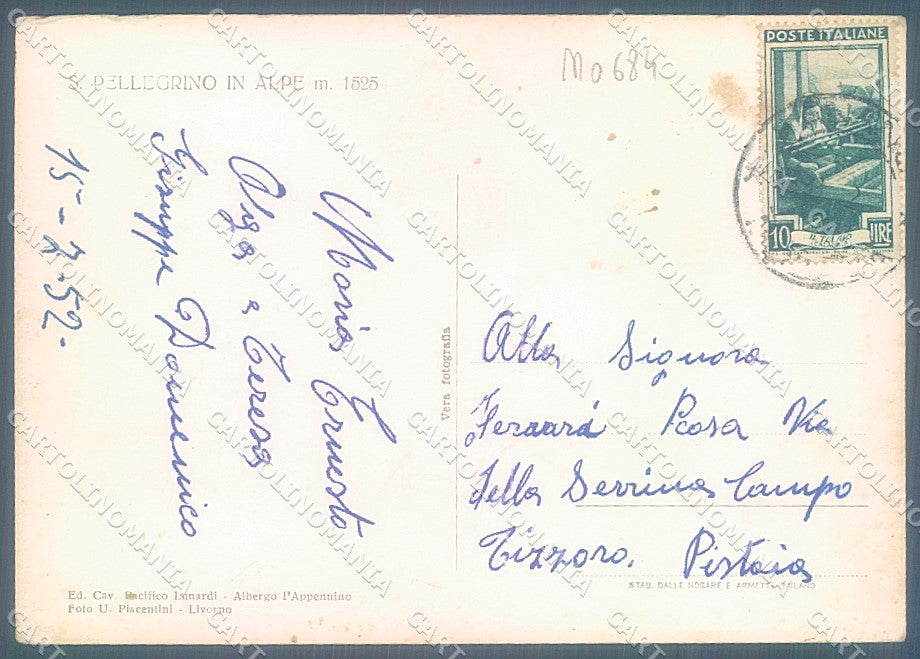 S. PELLEGRINO IN ALPE m. 1525
M0684
POSTE ITALIANE
10 LIRE
Maria Ernesto
Alga e Teresa
Giseppe Domenico
15-2-52-
Vera fotografia
Alla Signora
Feraará Rosa Via
della Serrina Campo
Tizzoro. Pistoia
Ed. Cav. Pacifico Lunardi - Albergo l'Appennino
Foto U. Piacentini - Livorno
STAB. DALLE NOGARE E ARMETTI - MILANO
CARTOLINOMANIA